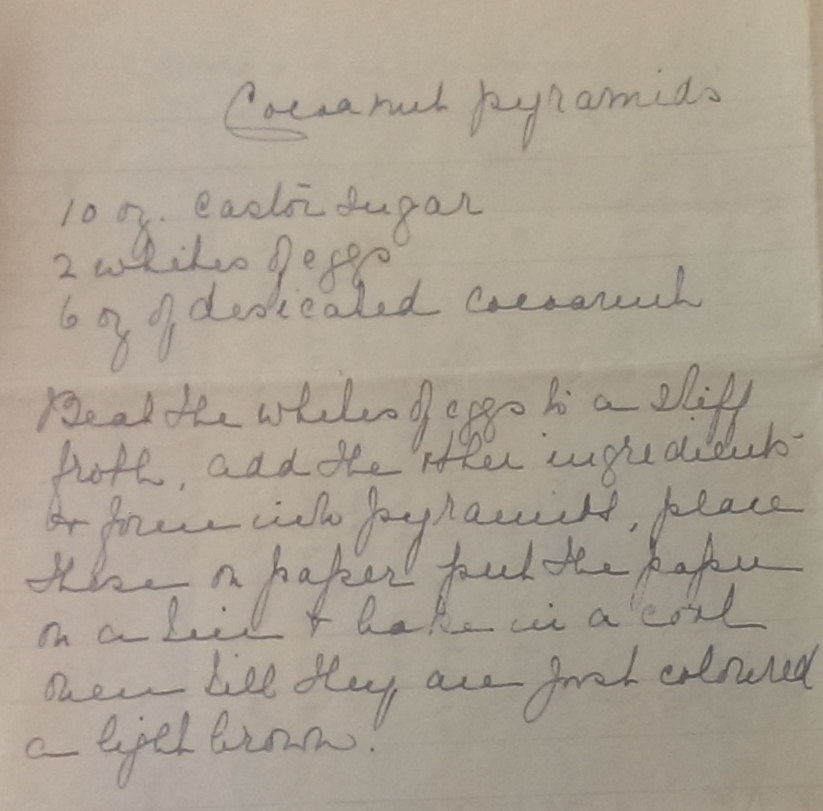 Cocoanut pyramids
10 oz. castor sugar
2 whites of eggs
6 oz of desicated cocoanut
Beat the whites of eggs to a stiff
froth, add the other ingredients
& form into pyramids, place
these on paper put the paper
on a tin & bake in a cool
oven till they are just coloured
a light brown.